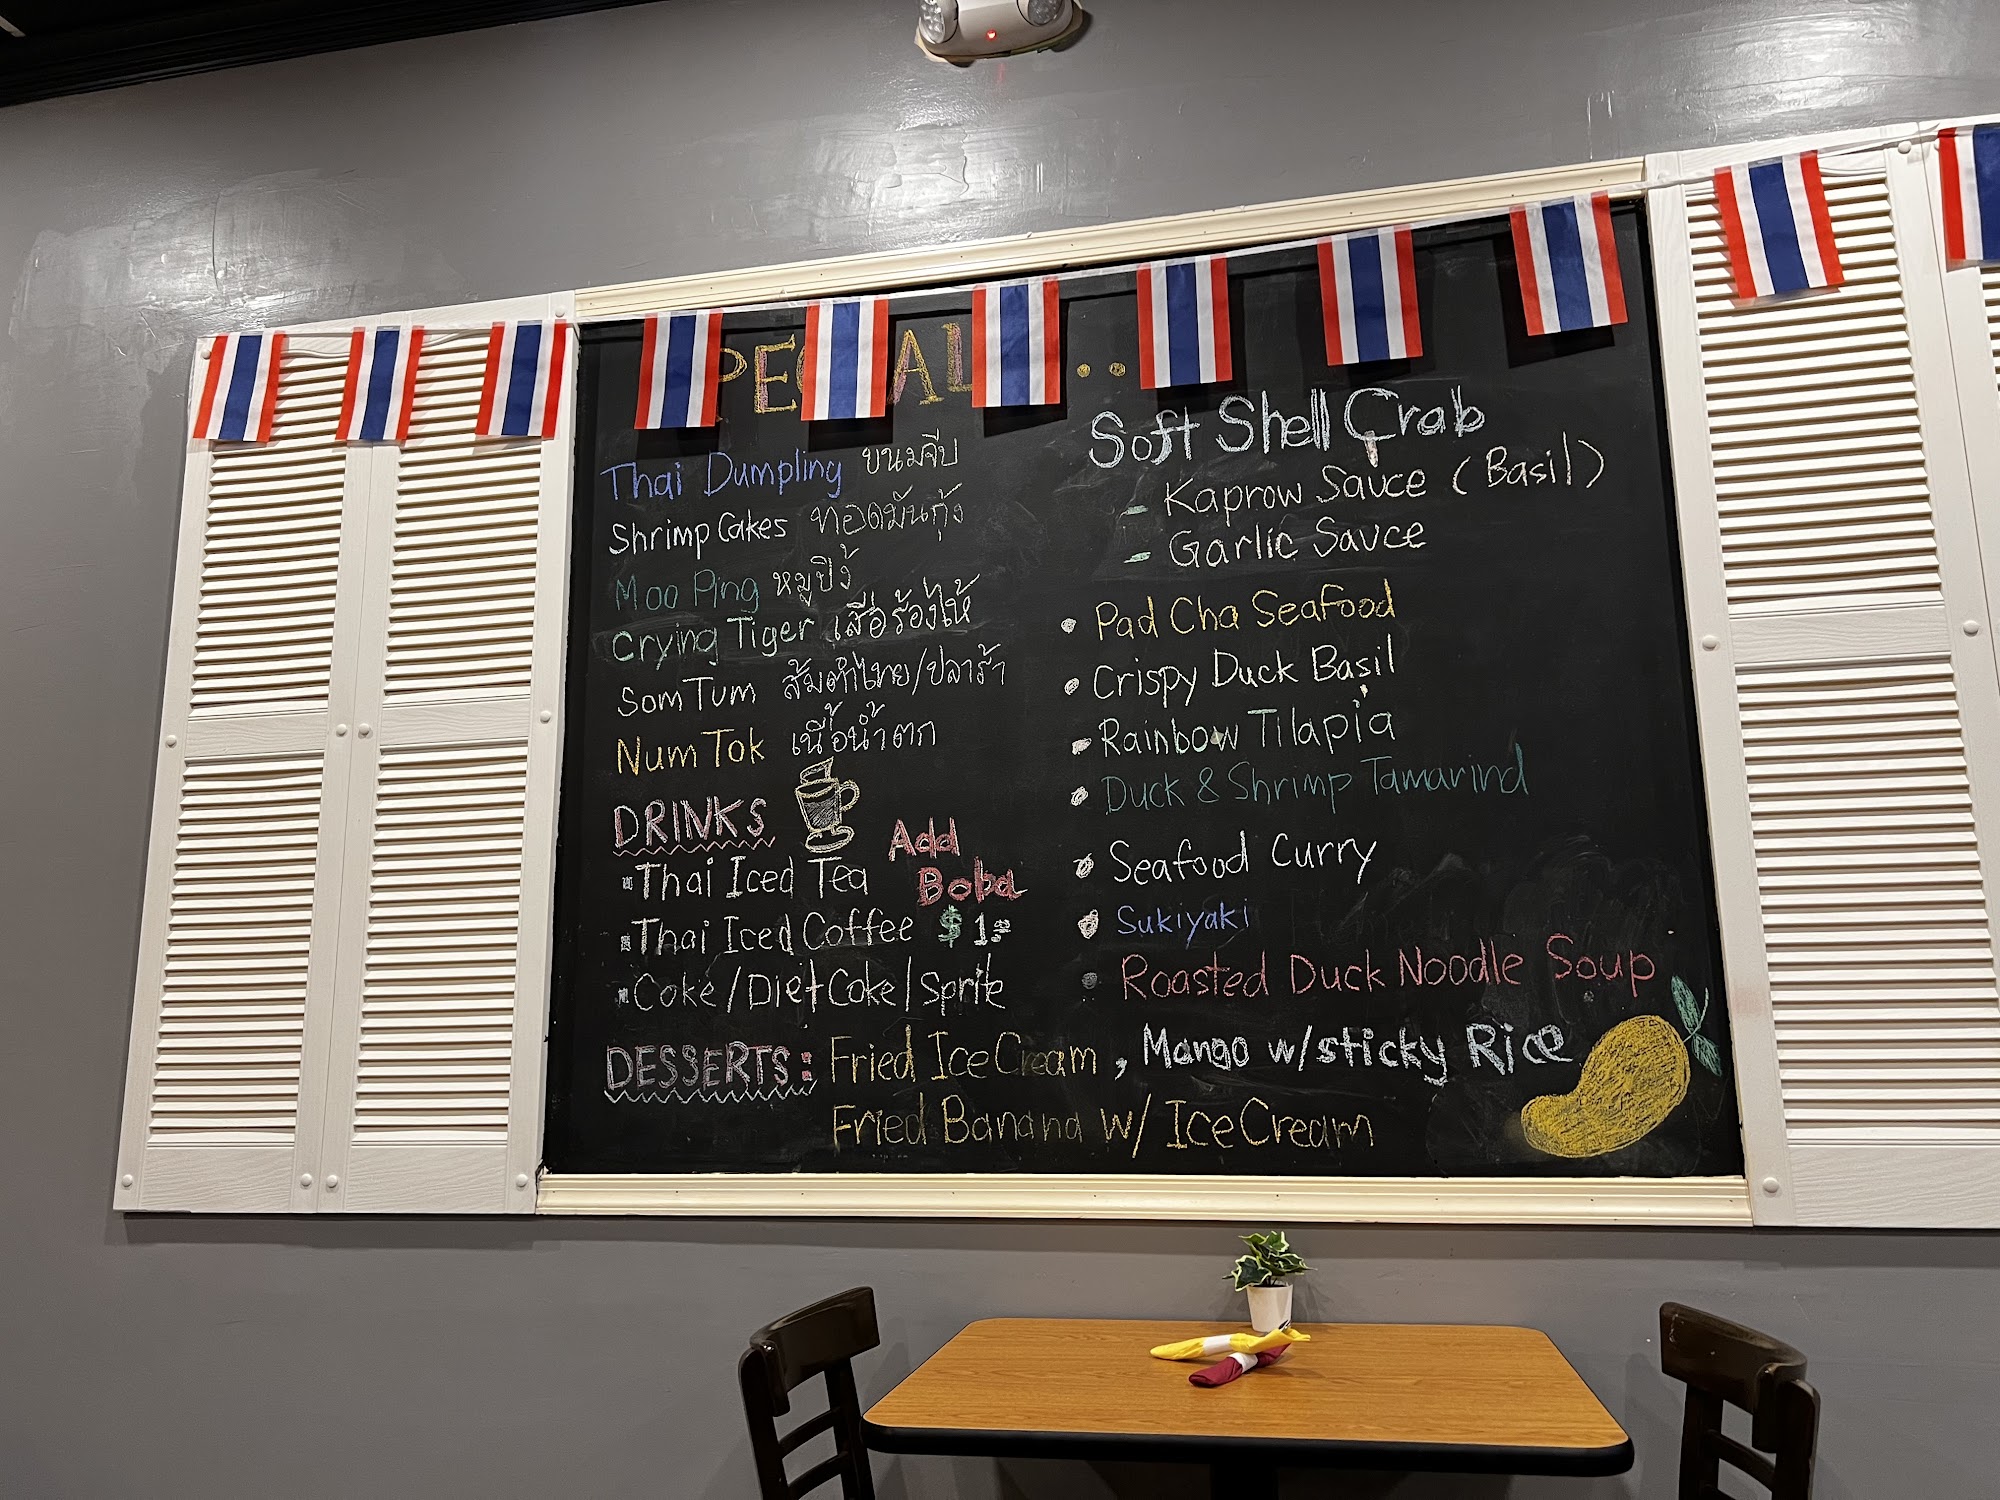 PECIAL ..
Thai Dumpling ขนมจีบ
Shrimp Cakes ทอดมันกุ้ง
Moo Ping หมูปิ้ง
Crying Tiger เสือร้องไห้
Som Tum ส้มตำไทย/ปลาร้า
Num Tok เนื้อน้ำตก
DRINKS
Thai Iced Tea
Thai Iced Coffee
Coke/Diet Coke/Sprite
Add
Boba
$1.00
Soft Shell Crab
- Kaprow Sauce (Basil)
- Garlic Sauce
• Pad Cha Seafood
• Crispy Duck Basil
• Rainbow Tilapia
• Duck & Shrimp Tamarind
• Seafood Curry
• Sukiyaki
• Roasted Duck Noodle Soup
DESSERTS: Fried Ice Cream, Mango w/sticky Rice
Fried Banana w/ Ice Cream